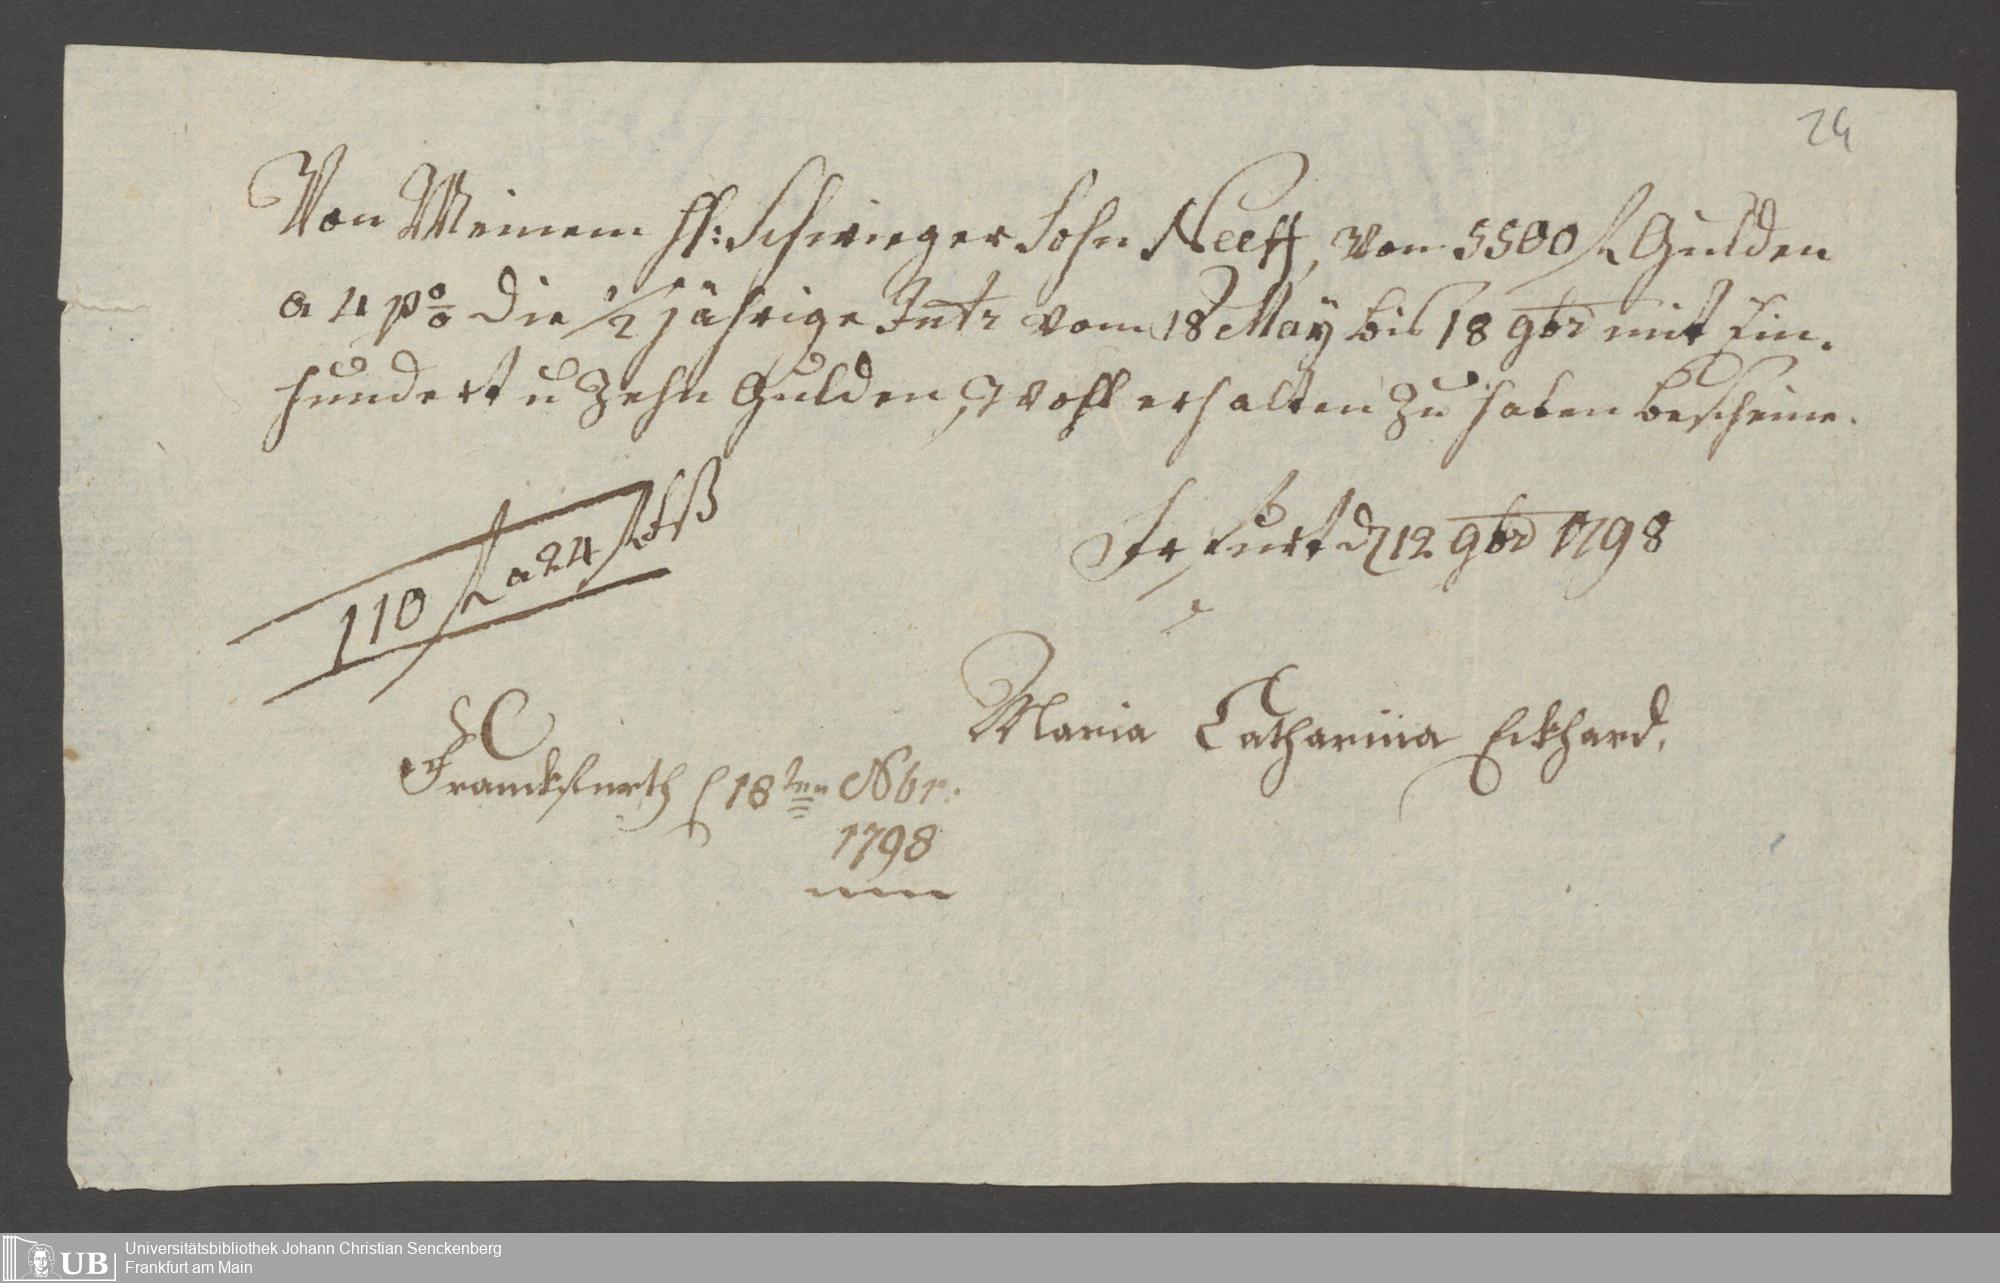 24
Von Meinem H: Schwieger Sohn Neeff, Von 5500 fl Gulden
a 4 po die 1/2 jährige Intr vom 18 May bis 18 9br mit Ein-
hundert u Zehn Gulden, Wohl erhalten zu haben bescheine.
110 fl a 24 fl fß
Frfurt d 12 9br 1798
Maria Catharina Eckhard.
Franckfurth 18ten Nbr.
1798
Universitätsbibliothek Johann Christian Senckenberg
UB Frankfurt am Main